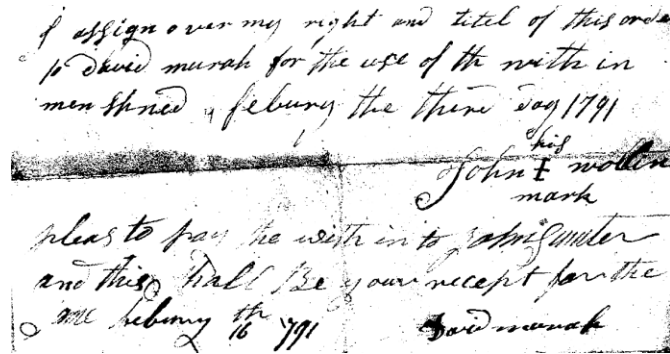 I assign over my right and titel of this orde
to david murah for the use of th with in
men shned, febury the third day 1791
his
John I wollen
mark
pleas to pay the with in to John Gunter
and this shall Be your recept for the
febury 16th 791
David murah